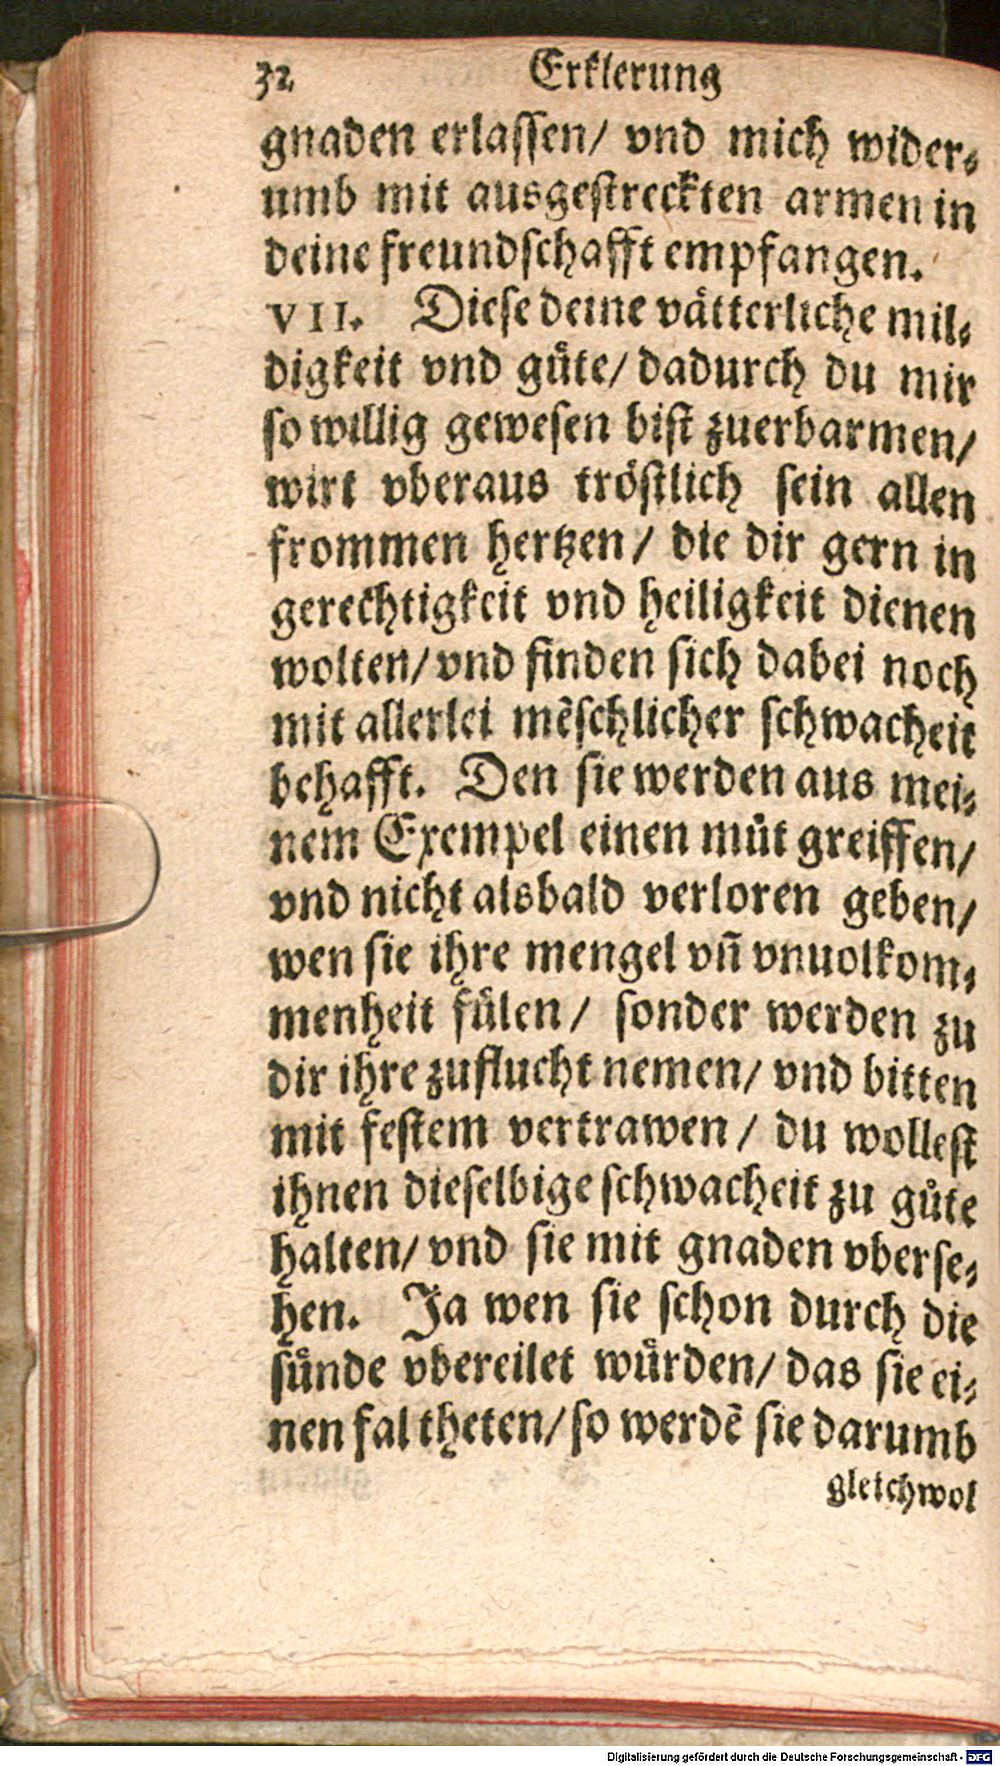 32 Erklerung
gnaden erlassen/ vnd mich wider⸗
umb mit ausgestreckten armen in
deine freundschafft empfangen.
VII. Diese deine vätterliche mil⸗
digkeit vnd güte/ dadurch du mir
so willig gewesen bist zuerbarmen/
wirt vberaus tröstlich sein allen
frommen hertzen/ die dir gern in
gerechtigkeit vnd heiligkeit dienen
wolten/ vnd finden sich dabei noch
mit allerlei mẽschlicher schwacheit
behafft. Den sie werden aus mei⸗
nem Exempel einen můt greiffen/
vnd nicht alsbald verloren geben/
wen sie ihre mengel vñ vnuolkom⸗
menheit fülen/ sonder werden zu
dir ihre zuflucht nemen/ vnd bitten
mit festem vertrawen/ du wollest
ihnen dieselbige schwacheit zu gůte
halten/ vnd sie mit gnaden vberse⸗
hen. Ja wen sie schon durch die
sünde vbereilet würden/ das sie ei⸗
nen fal theten/ so werdẽ sie darumb
gleichwol
Digitalisierung gefördert durch die Deutsche Forschungsgemeinschaft - DFG